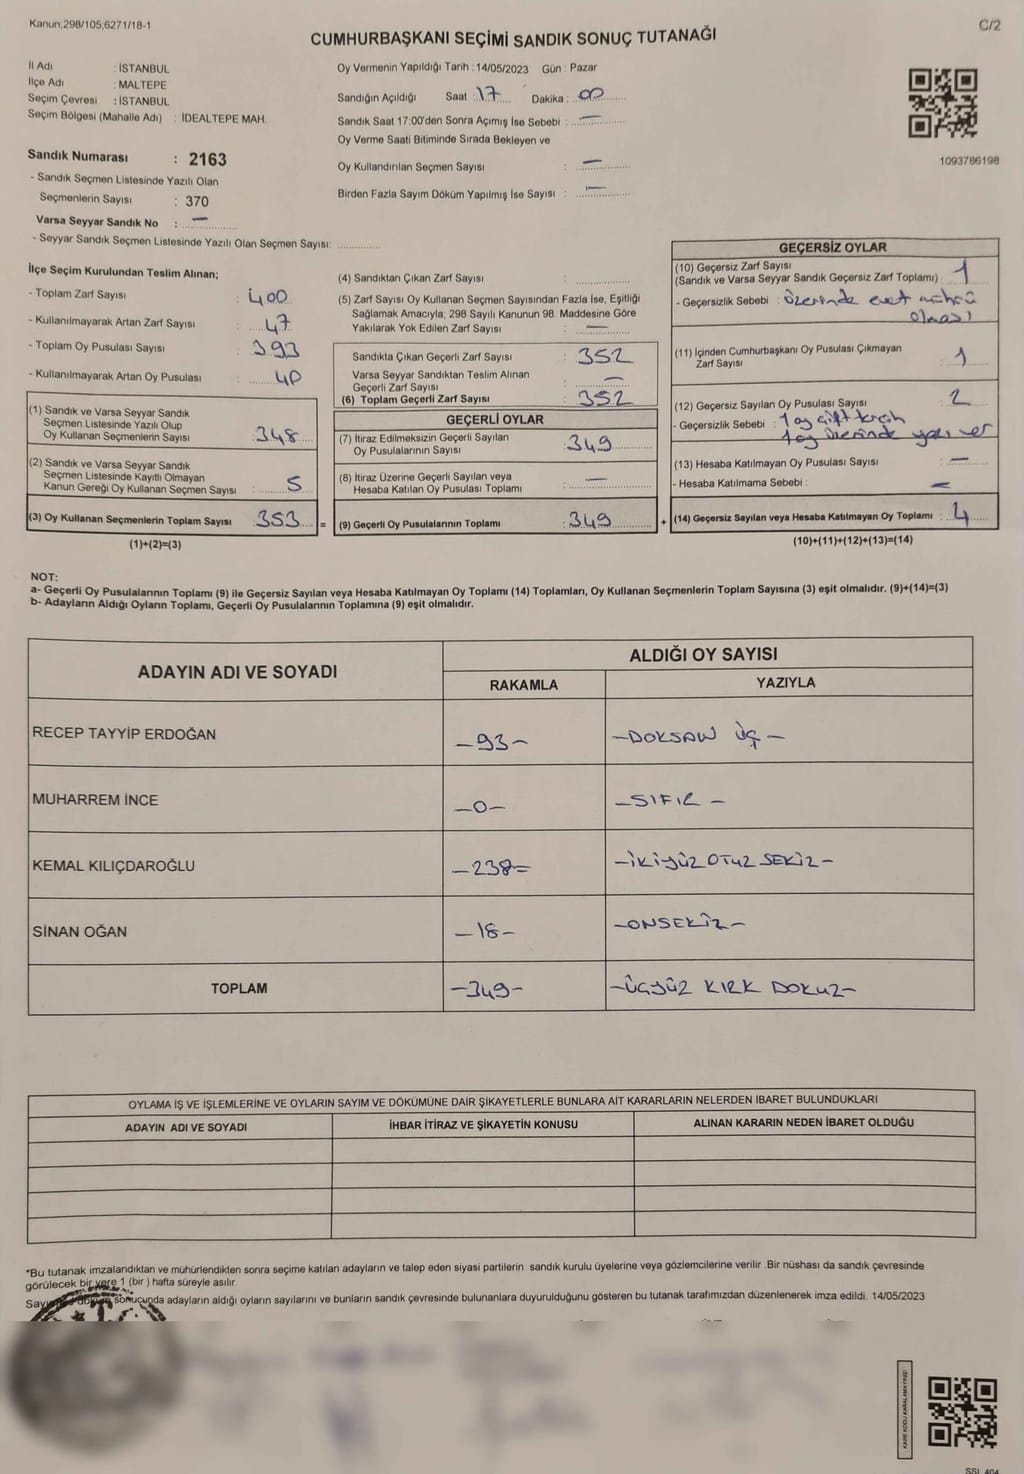 Kanun;298/105,6271/18-1
C/2
CUMHURBAŞKANI SEÇİMİ SANDIK SONUÇ TUTANAĞI
İl Adı : İSTANBUL
İlçe Adı : MALTEPE
Seçim Çevresi : İSTANBUL
Seçim Bölgesi (Mahalle Adı) : İDEALTEPE MAH.
Sandık Numarası : 2163
- Sandık Seçmen Listesinde Yazılı Olan
Seçmenlerin Sayısı : 370
Varsa Seyyar Sandık No : —
- Seyyar Sandık Seçmen Listesinde Yazılı Olan Seçmen Sayısı: ............
Oy Vermenin Yapıldığı Tarih : 14/05/2023 Gün : Pazar
Sandığın Açıldığı Saat : 17 Dakika : 00
Sandık Saat 17:00'den Sonra Açımış İse Sebebi : —
Oy Verme Saati Bitiminde Sırada Bekleyen ve
Oy Kullandırılan Seçmen Sayısı : —
Birden Fazla Sayım Döküm Yapılmış İse Sayısı : —
1093786198
İlçe Seçim Kurulundan Teslim Alınan;
- Toplam Zarf Sayısı : 400
- Kullanılmayarak Artan Zarf Sayısı : 47
- Toplam Oy Pusulası Sayısı : 393
- Kullanılmayarak Artan Oy Pusulası : 40
(1) Sandık ve Varsa Seyyar Sandık
Seçmen Listesinde Yazılı Olup
Oy Kullanan Seçmenlerin Sayısı : 348
(2) Sandık ve Varsa Seyyar Sandık
Seçmen Listesinde Kayıtlı Olmayan
Kanun Gereği Oy Kullanan Seçmen Sayısı : 5
(3) Oy Kullanan Seçmenlerin Toplam Sayısı : 353 =
(1)+(2)=(3)
(4) Sandıktan Çıkan Zarf Sayısı : ............
(5) Zarf Sayısı Oy Kullanan Seçmen Sayısından Fazla İse, Eşitliği
Sağlamak Amacıyla; 298 Sayılı Kanunun 98. Maddesine Göre
Yakılarak Yok Edilen Zarf Sayısı : —
Sandıkta Çıkan Geçerli Zarf Sayısı : 352
Varsa Seyyar Sandıktan Teslim Alınan
Geçerli Zarf Sayısı : —
(6) Toplam Geçerli Zarf Sayısı : 352
GEÇERLİ OYLAR
(7) İtiraz Edilmeksizin Geçerli Sayılan
Oy Pusulalarının Sayısı : 349
(8) İtiraz Üzerine Geçerli Sayılan veya
Hesaba Katılan Oy Pusulası Toplamı : —
(9) Geçerli Oy Pusulalarının Toplamı : 349 +
GEÇERSİZ OYLAR
(10) Geçersiz Zarf Sayısı
(Sandık ve Varsa Seyyar Sandık Geçersiz Zarf Toplamı) : 1
- Geçersizlik Sebebi : üzerinde evet mührü
olması
(11) İçinden Cumhurbaşkanı Oy Pusulası Çıkmayan
Zarf Sayısı : 1
(12) Geçersiz Sayılan Oy Pusulası Sayısı : 2
- Geçersizlik Sebebi : 1 oy çift tercih
1 oy üzerinde yazı var
(13) Hesaba Katılmayan Oy Pusulası Sayısı : —
- Hesaba Katılmama Sebebi : —
(14) Geçersiz Sayılan veya Hesaba Katılmayan Oy Toplamı : 4
(10)+(11)+(12)+(13)=(14)
NOT:
a- Geçerli Oy Pusulalarının Toplamı (9) ile Geçersiz Sayılan veya Hesaba Katılmayan Oy Toplamı (14) Toplamları, Oy Kullanan Seçmenlerin Toplam Sayısına (3) eşit olmalıdır. (9)+(14)=(3)
b- Adayların Aldığı Oyların Toplamı, Geçerli Oy Pusulalarının Toplamına (9) eşit olmalıdır.
ADAYIN ADI VE SOYADI
ALDIĞI OY SAYISI
RAKAMLA YAZIYLA
RECEP TAYYİP ERDOĞAN -93- -DOKSAN ÜÇ-
MUHARREM İNCE -0- -SIFIR-
KEMAL KILIÇDAROĞLU -238- -İKİYÜZ OTUZ SEKİZ-
SİNAN OĞAN -18- -ONSEKİZ-
TOPLAM -349- -ÜÇYÜZ KIRK DOKUZ-
OYLAMA İŞ VE İŞLEMLERİNE VE OYLARIN SAYIM VE DÖKÜMÜNE DAİR ŞİKAYETLERLE BUNLARA AİT KARARLARIN NELERDEN İBARET BULUNDUKLARI
ADAYIN ADI VE SOYADI İHBAR İTİRAZ VE ŞİKAYETİN KONUSU ALINAN KARARIN NEDEN İBARET OLDUĞU
*Bu tutanak imzalandıktan ve mühürlendikten sonra seçime katılan adayların ve talep eden siyasi partilerin sandık kurulu üyelerine veya gözlemcilerine verilir .Bir nüshası da sandık çevresinde
görülecek bir yere 1 (bir ) hafta süreyle asılır.
döküm sonucunda adayların aldığı oyların sayılarını ve bunların sandık çevresinde bulunanlara duyurulduğunu gösteren bu tutanak tarafımızdan düzenlenerek imza edildi. 14/05/2023
KARE KODU KARALAMAYINIZ!